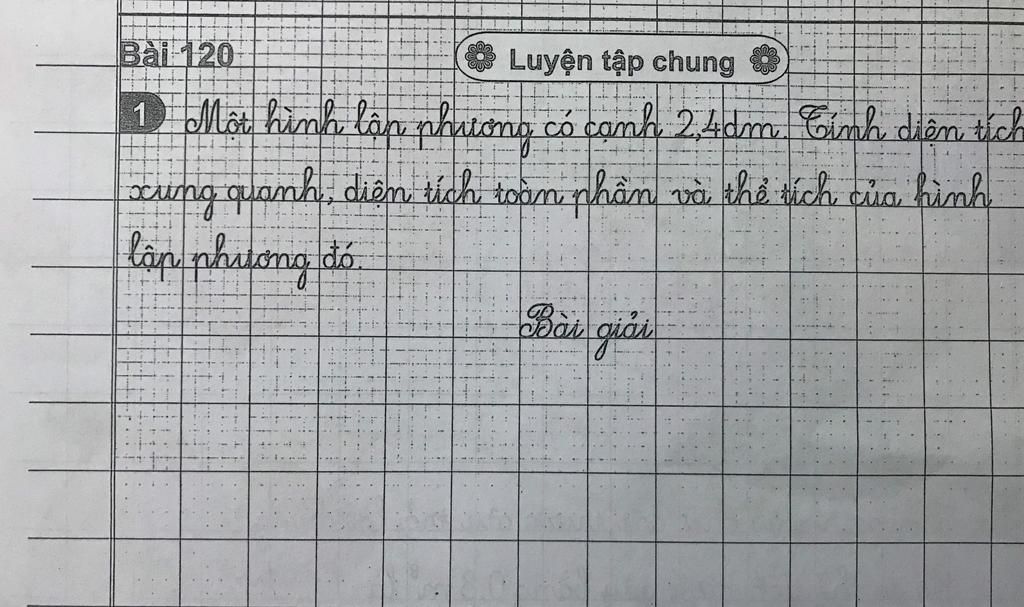 Bài 120
Luyện tập chung
1 Một hình lập phương có cạnh 2,4dm. Tính diện tích
xung quanh, diện tích toàn phần và thể tích của hình
lập phương đó.
Bài giải